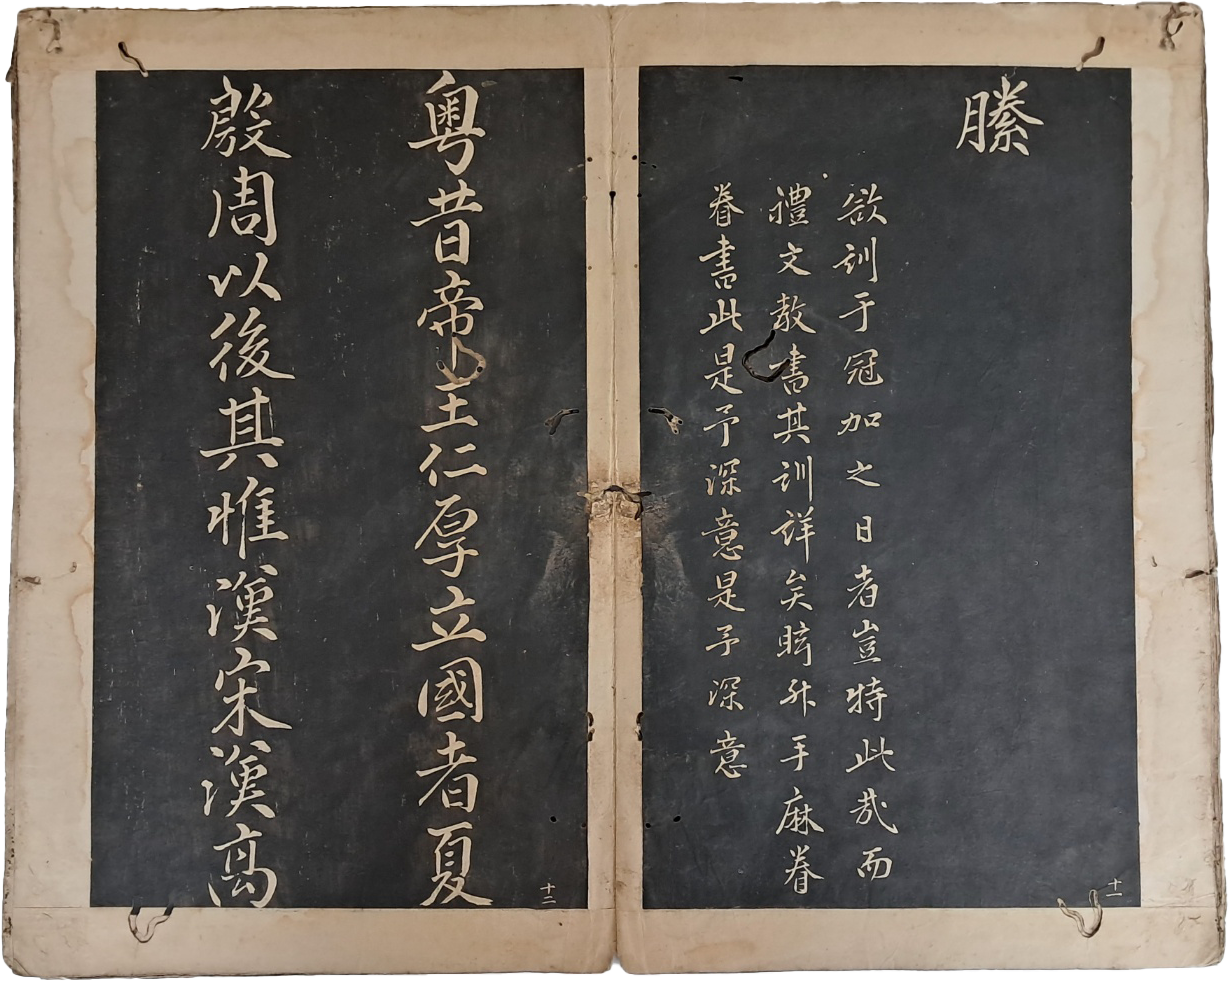 縢
欲訓于冠加之日者豈特此哉而
禮文教書其訓詳矣眩升手麻眷
眷書此是予深意是予深意
十一
粤昔帝王仁厚立國者夏
殷周以後其惟漢宋漢高
十二